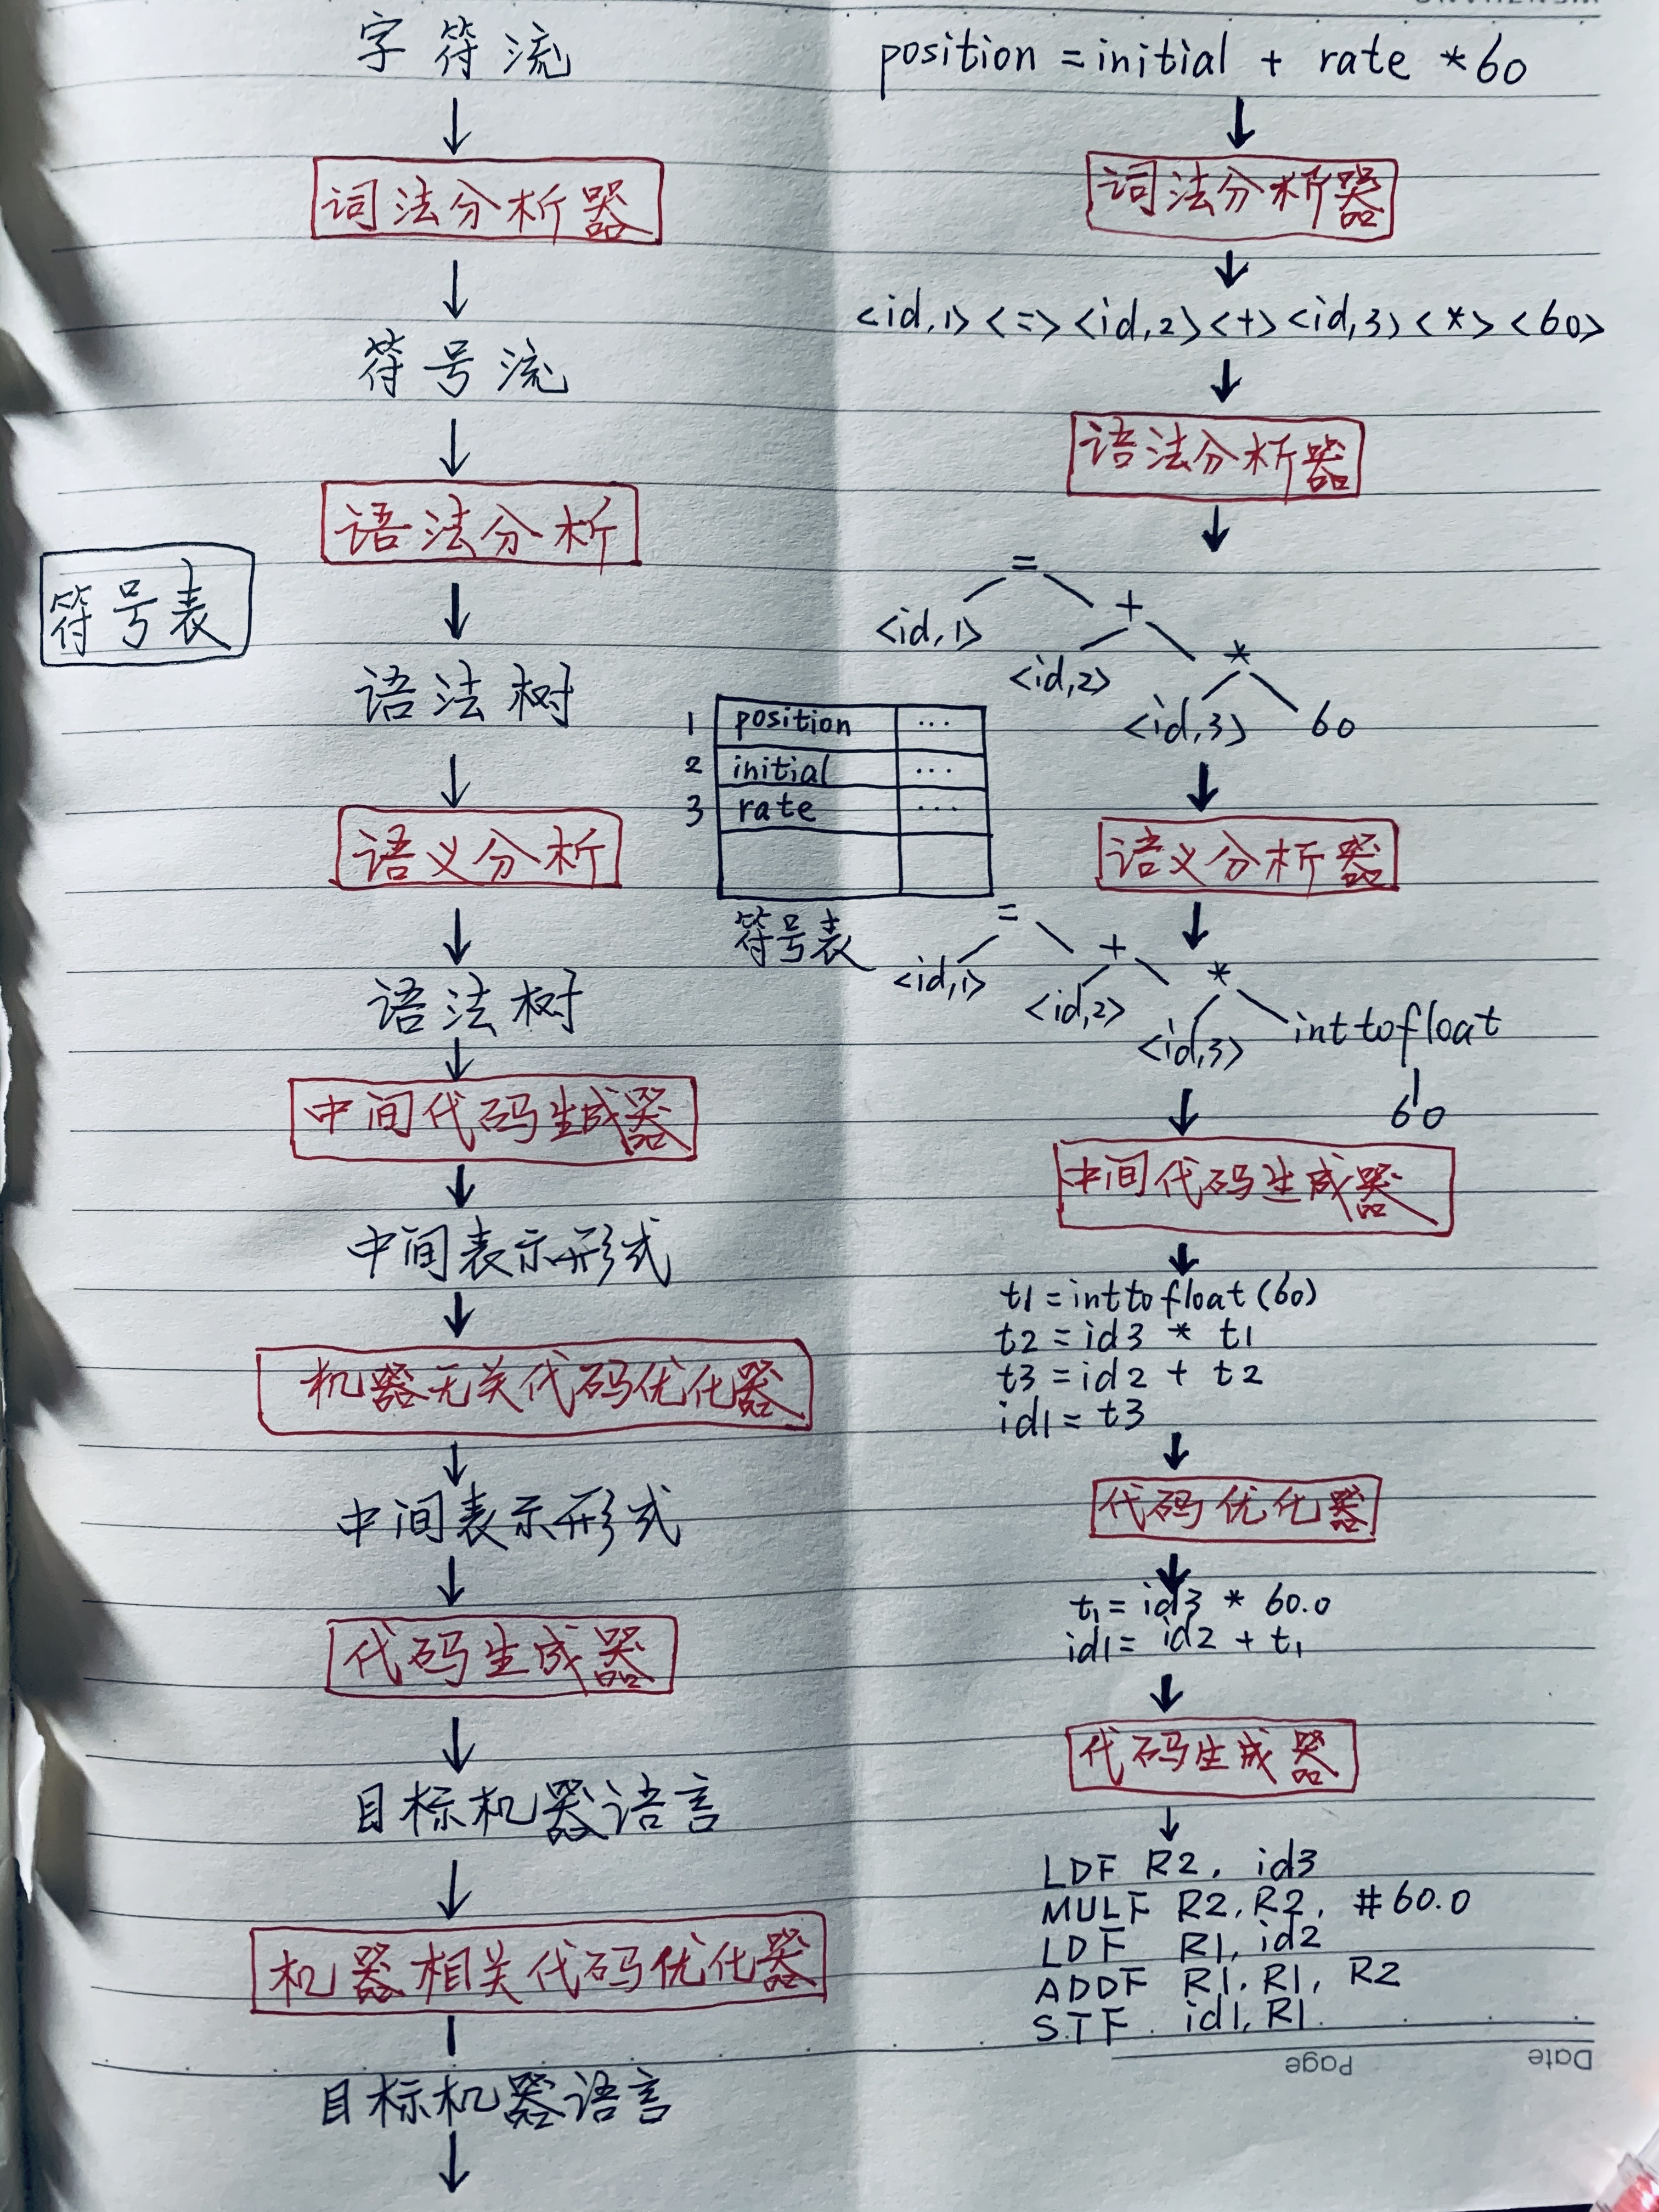 字符流
词法分析器
符号流
语法分析
符号表
语法树
语义分析
语法树
中间代码生成器
中间表示形式
机器无关代码优化器
中间表示形式
代码生成器
目标机器语言
机器相关代码优化器
目标机器语言
position = initial + rate * 60
词法分析器
<id,1> <=> <id,2> <+> <id,3> <*> <60>
语法分析器
=
<id,1> +
<id,2> *
<id,3> 60
1 position ...
2 initial ...
3 rate ...
符号表
语义分析器
=
<id,1> +
<id,2> *
<id,3> inttofloat
60
中间代码生成器
t1 = inttofloat(60)
t2 = id3 * t1
t3 = id2 + t2
id1 = t3
代码优化器
t1 = id3 * 60.0
id1 = id2 + t1
代码生成器
LDF R2, id3
MULF R2, R2, #60.0
LDF R1, id2
ADDF R1, R1, R2
STF id1, R1
Page Date